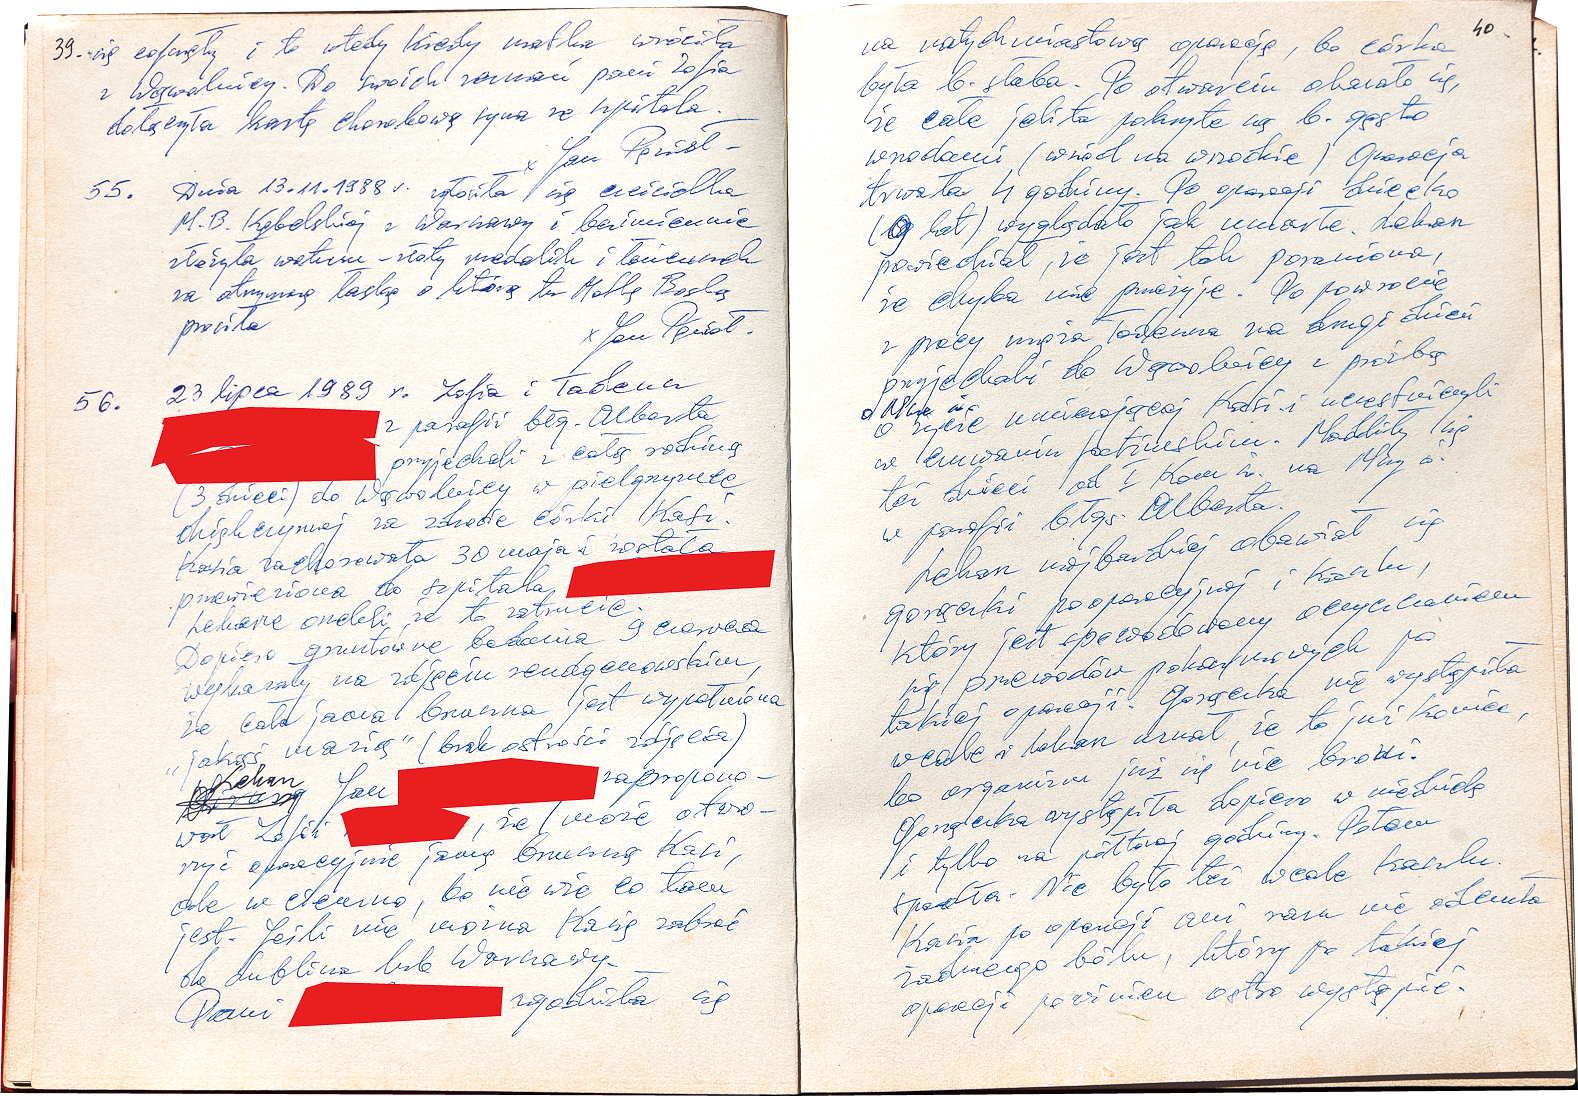 39. się cofnęły i to wtedy kiedy matka wróciła
z Wąwolnicy. Do swoich zeznań pani Zofia
dołączyła kartę chorobową syna ze szpitala.
x Jan Pęzioł -
55. Dnia 13.11.1988 r. zgłosiła się czcicielka
M.B. Kębelskiej z Warszawy i bezimiennie
złożyła wotum – złoty medalik i łańcuszek
za otrzymaną łaskę o którą tu Matkę Boską
prosiła
x Jan Pęzioł.
56. 23 lipca 1989 r. Zofia i Tadeusz
z parafii błg. Alberta
przyjechali z całą rodziną
(3 dzieci) do Wąwolnicy w pielgrzymce
dziękczynnej za zdrowie córki Kasi.
Kasia zachorowała 30 maja i została
przewieziona do szpitala
Lekarze orzekli, że to zatrucie.
Dopiero gruntowne badania 9 czerwca
wykazały na zdjęciu rendgenowskim,
że cała jama brzuszna jest wypełniona
„jakąś mazią" (brak ostrości zdjęcia)
lekarz
Jan zapropono-
wał Zofii , że może otwo-
rzyć operacyjnie jamę brzuszną Kasi,
ale w ciemno, bo nie wie co tam
jest. Jeśli nie można Kasię zabrać
do Lublina lub Warszawy.
Pani zgodziła się
40.
na natychmiastową operację, bo córka
była b. słaba. Po otwarciu okazało się,
że całe jelita pokryte są b. gęsto
wrzodami (wrzód na wrzodzie) Operacja
trwała 4 godziny. Po operacji dziecko
(9 lat) wyglądało jak umarłe. Lekarz
powiedział, że jest tak poraniona,
że chyba nie przeżyje. Po powrocie
z pracy męża Tadeusza na drugi dzień
przyjechali do Wąwolnicy z prośbą
o życie umierającej Kasi i uczestniczyli
w czuwaniu fatimskim. Modliły się
też dzieci od I Kom św. na Mszy ś.
w parafii błgs. Alberta.
Lekarz najbardziej obawiał się
gorączki pooperacyjnej i kaszlu,
który jest spowodowany oczyszczaniem
się przewodów pokarmowych po
takiej operacji. Gorączka nie wystąpiła
wcale i lekarz uznał, że to już koniec,
bo organizm już się nie broni.
Gorączka wystąpiła dopiero w niedzielę
i tylko na półtorej godziny. Potem
spadła. Nie było też wcale kaszlu.
Kasia po operacji ani razu nie odczuła
żadnego bólu, który po takiej
operacji powinien ostro wystąpić.